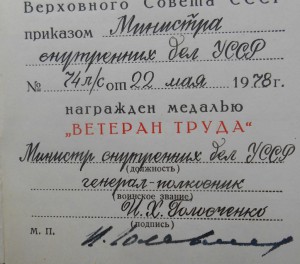 Верховного Совета СССР
приказом Министра
внутренних дел УССР
№ 74 л/с от 22 мая 1978 г.
награжден медалью
„ВЕТЕРАН ТРУДА“
Министр внутренних дел УССР
(должность)
генерал-полковник
(воинское звание)
И.Х. Головченко
(подпись)
М. П.